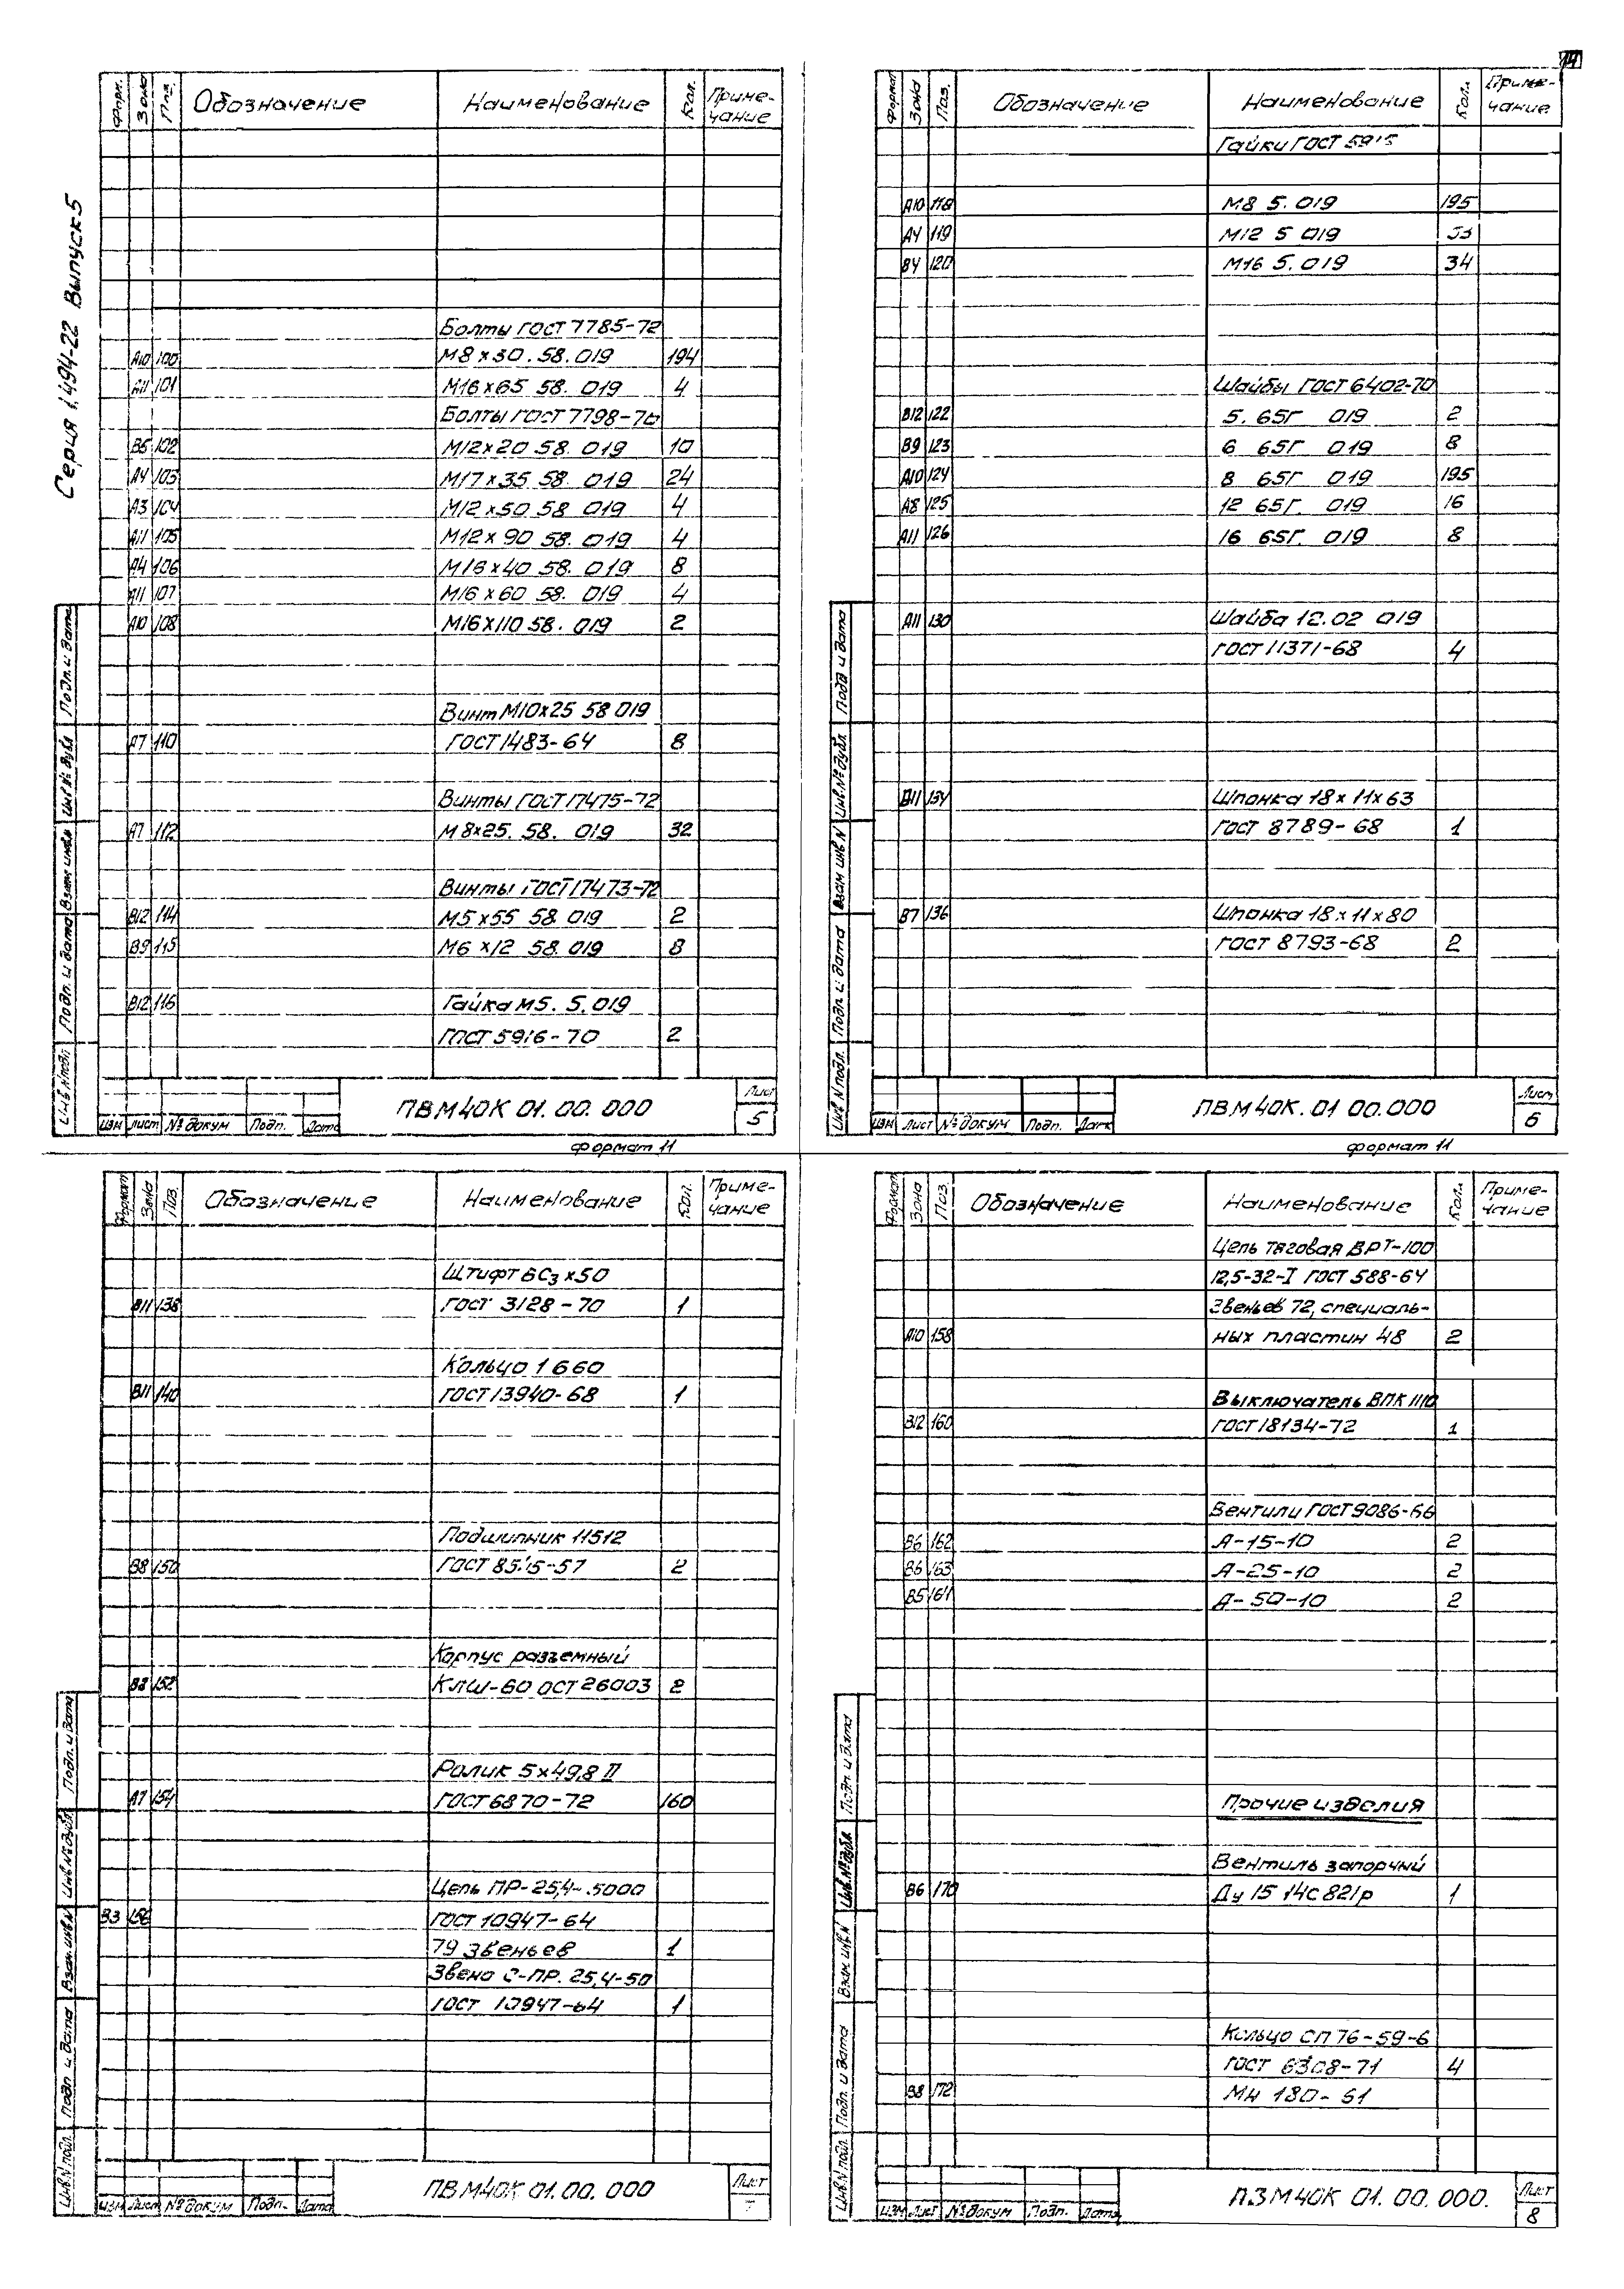 14
Серия 1.494-22 Выпуск 5
Форм. Зона Поз. Обозначение Наименование Кол. Приме-
чание
Болты ГОСТ 7785-72
А10 100 М8×30.58.019 194
А11 101 М16×65 58. 019 4
Болты ГОСТ 7798-70
В6 102 М12×20 58. 019 10
А4 103 М17×35 58. 019 24
А3 104 М12×50 58 019 4
А11 105 М12×90 58. 019 4
А4 106 М16×40 58. 019 8
А11 107 М16×60 58. 019 4
А10 108 М16×110 58. 019 2
Винт М10×25 58 019
А7 110 ГОСТ 1483-64 8
Винты ГОСТ 17475-72
А7 112 М8×25. 58. 019 32
Винты ГОСТ 17473-72
В12 114 М5×55 58. 019 2
В9 115 М6×12 58. 019 8
В12 116 Гайка М5. 5. 019
ГОСТ 5916-70 2
Инв № подл Подп. и дата Взам. инв № Инв № дубл Подп. и дата
Изм Лист № докум Подп. Дата ПВМ40К 01. 00. 000 Лист
5
Формат 11
Формат Зона Поз. Обозначение Наименование Кол. Приме-
чание
Гайки ГОСТ 5915
А10 118 М8 5. 019 195
А4 119 М12 5 019
В4 120 М16 5. 019 34
Шайбы ГОСТ 6402-70
В12 122 5. 65Г 019 2
В9 123 6 65Г 019 8
А10 124 8 65Г 019 195
А8 125 12 65Г 019 16
А11 126 16 65Г. 019 8
А11 130 Шайба 12.02 019
ГОСТ 11371-68 4
В11 134 Шпонка 18×11×63
ГОСТ 8789-68 1
В7 136 Шпонка 18×11×80
ГОСТ 8793-68 2
Инв № подл. Подп. и дата Взам инв № Инв. № дубл Подп и дата
Изм Лист № докум Подп. Дата ПВМ40К. 01 00.000 Лист
6
Формат 11
Формат Зона Поз. Обозначение Наименование Кол. Приме-
чание
Штифт 6С3×50
В11 138 ГОСТ 3128-70 1
Кольцо 1 Б60
В11 140 ГОСТ 13940-68 1
Подшипник 11512
В8 150 ГОСТ 8545-57 2
Корпус разъемный
В8 152 КЛШ-60 ОСТ 26003 2
Ролик 5×49,8 II
А7 154 ГОСТ 6870-72 160
Цепь ПР-25,4-5000
В3 156 ГОСТ 10947-64
79 звеньев 1
Звено С-ПР. 25,4-50
ГОСТ 10947-64 1
Инв. № подл. Подп. и дата Взам. инв. № Инв № дубл. Подп. и дата
Изм Лист № докум Подп. Дата ПВМ40К 01. 00. 000 Лист
7
Формат Зона Поз. Обозначение Наименование Кол. Приме-
чание
Цепь тяговая ВРТ-100
12,5-32-I ГОСТ 588-64
Звеньев 72, специаль-
А10 158 ных пластин 48 2
Выключатель ВПК 1110
В12 160 ГОСТ 18134-72 1
Вентили ГОСТ 9086-66
В6 162 А-15-10 2
В6 163 А-25-10 2
В5 164 А-50-10 2
Прочие изделия
Вентиль запорный
В6 170 Ду 15 14с 821р 1
Кольцо СП 76-59-6
ГОСТ 6308-71 4
В8 172 МН 180-61
Инв. № подл. Подп. и дата Взам. инв. № Инв. № дубл. Подп. и дата
Изм Лист № докум Подп. Дата ПЗМ40К 01. 00. 000. Лист
8